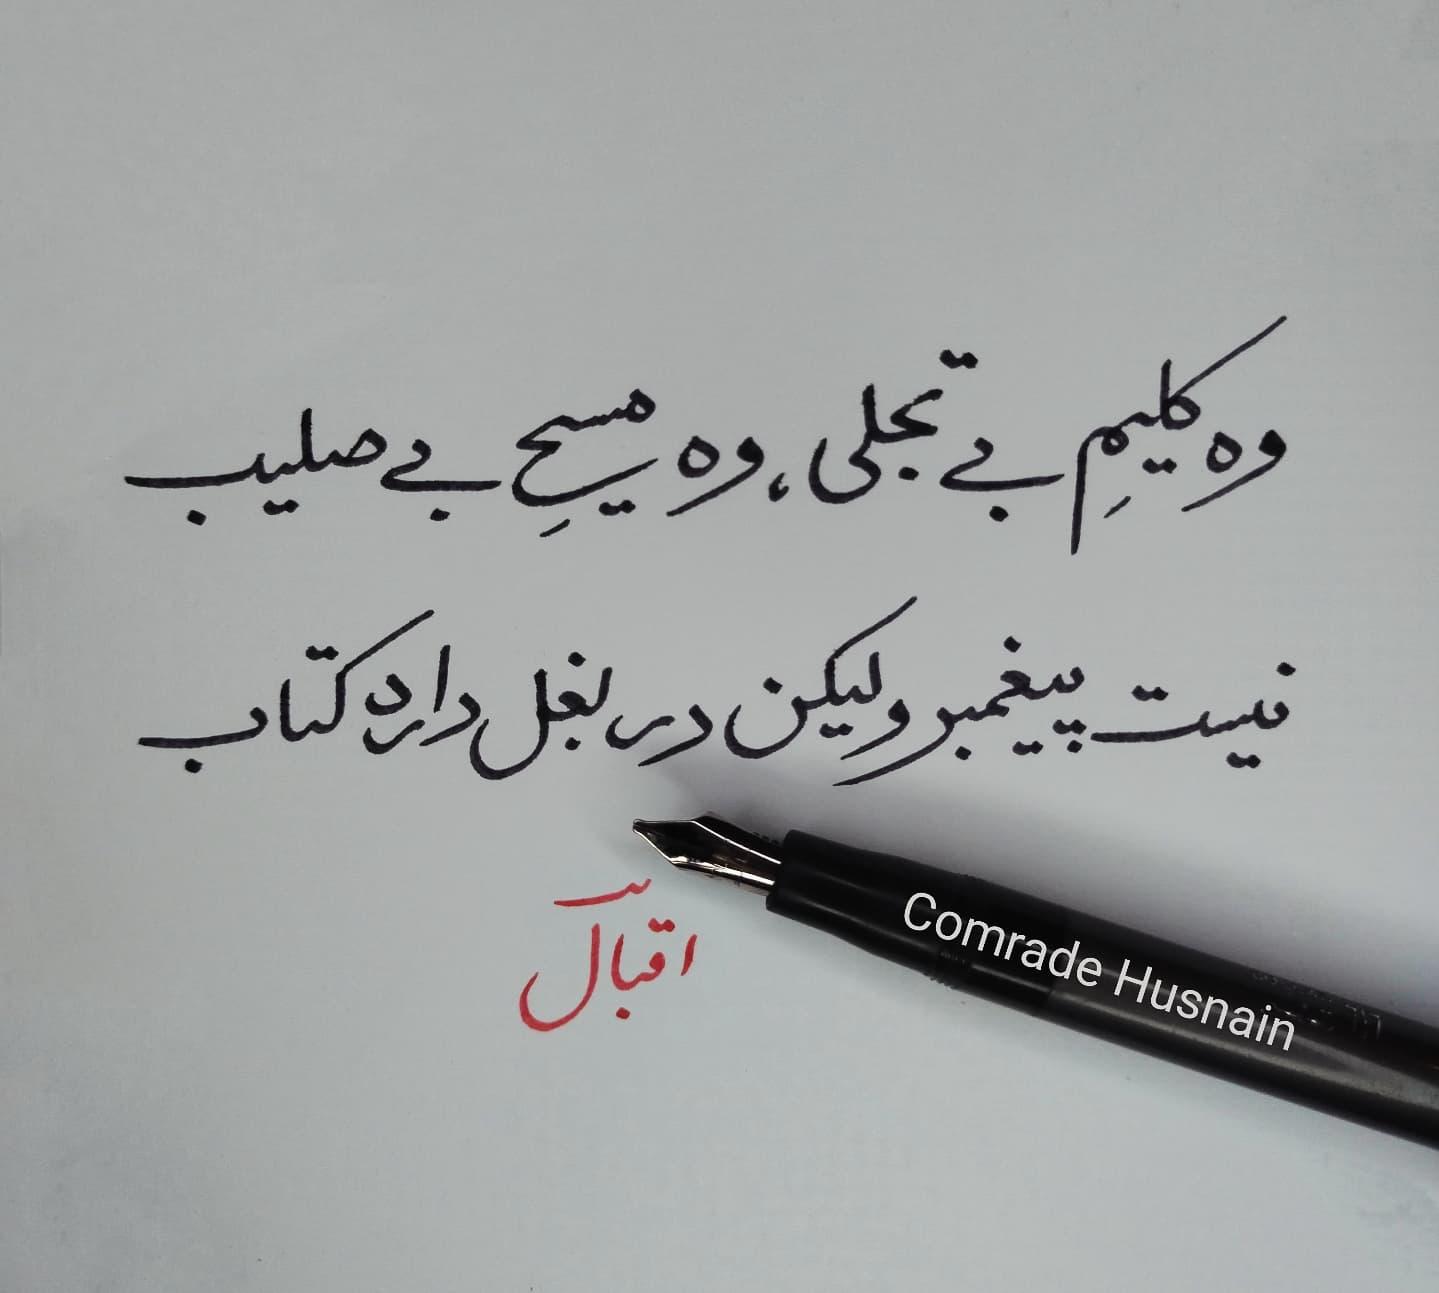 وہ کلیمِ بے تجلی، وہ مسیحِ بے صلیب
نیست پیغمبر و لیکن در بغل دارد کتاب
اقبالؔ
Comrade Husnain